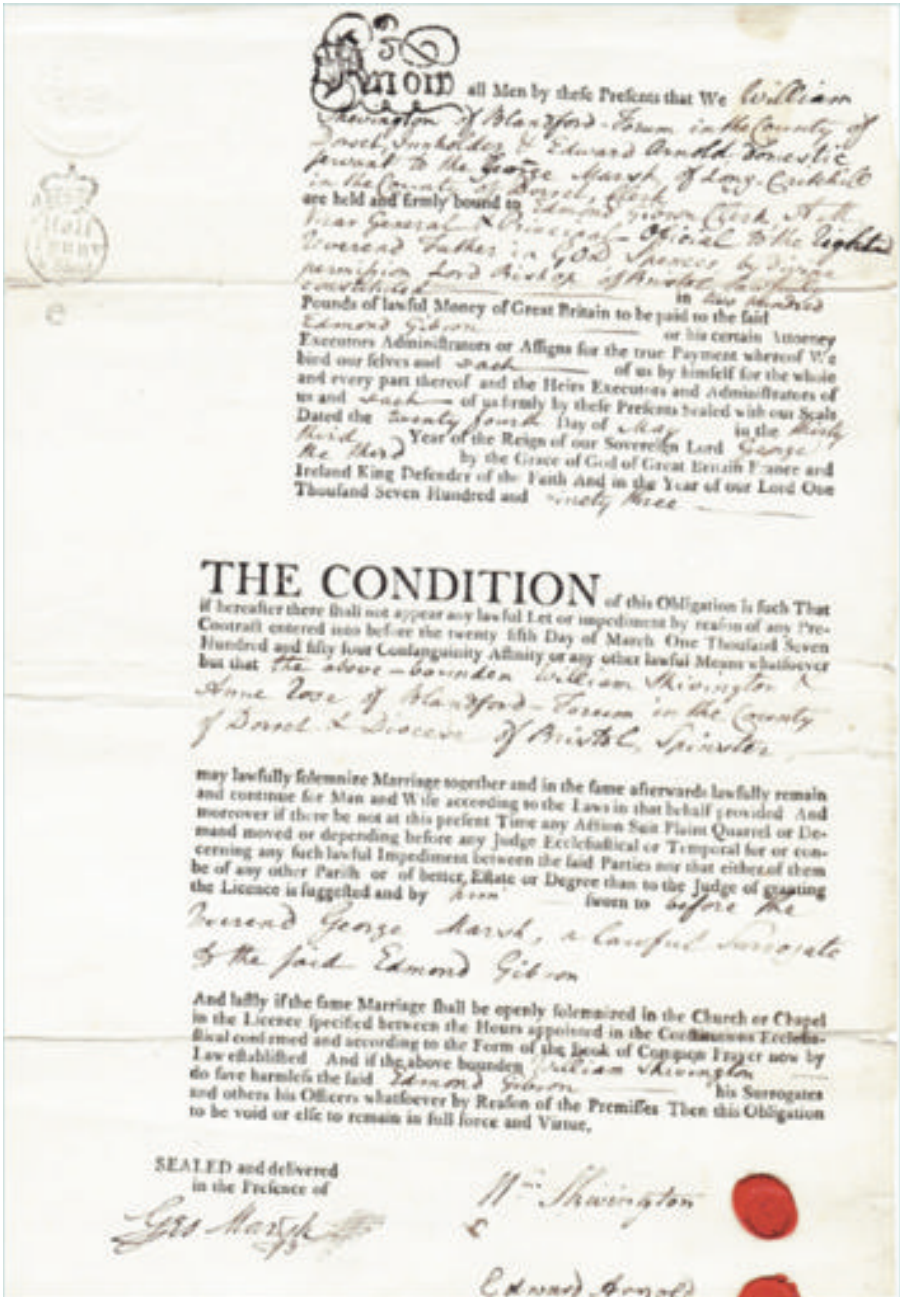 Know all Men by these Presents that We William
Skivington of Blandford-Forum in the County of
Dorset, Innholder & Edward Arnold Domestic
servant to the George Marsh of Long-Critchill
in the County of Dorset, Clerk
are held and firmly bound to Edmond Gibson Clerk, A.M.
Vicar General & Principal Official to the Right
Reverend Father in GOD Spencer by divine
permission Lord Bishop of Bristol lawfully
constituted in two hundred
Pounds of lawful Money of Great Britain to be paid to the said
Edmond Gibson or his certain Attorney
Executors Administrators or Assigns for the true Payment whereof We
bind our selves and each of us by himself for the whole
and every part thereof and the Heirs Executors and Administrators of
us and each of us firmly by these Presents Sealed with our Seals
Dated the twenty fourth Day of May in the thirty
third Year of the Reign of our Sovereign Lord George
the third by the Grace of God of Great Britain France and
Ireland King Defender of the Faith And in the Year of our Lord One
Thousand Seven Hundred and ninety three
THE CONDITION of this Obligation is such That
if hereafter there shall not appear any lawful Let or impediment by reason of any Pre-
Contract entered into before the twenty fifth Day of March One Thousand Seven
Hundred and fifty four Consanguinity Affinity or any other lawful Means whatsoever
but that the above-bounden William Skivington &
Anne Rose of Blandford-Forum in the County
of Dorset & Diocese of Bristol, Spinster
may lawfully solemnize Marriage together and in the same afterwards lawfully remain
and continue for Man and Wife according to the Laws in that behalf provided And
moreover if there be not at this present Time any Action Suit Plaint Quarrel or De-
mand moved or depending before any Judge Ecclesiastical or Temporal for or con-
cerning any such lawful Impediment between the said Parties nor that either of them
be of any other Parish or of better Estate or Degree than to the Judge of granting
the Licence is suggested and by him sworn to before the
Reverend George Marsh, a lawful Surrogate
to the said Edmond Gibson
And lastly if the same Marriage shall be openly solemnized in the Church or Chapel
in the Licence specified between the Hours appointed in the Constitutions Ecclesia-
stical confirmed and according to the Form of the Book of Common Prayer now by
Law established And if the above bounden William Skivington
do save harmless the said Edmond Gibson his Surrogates
and others his Officers whatsoever by Reason of the Premisses Then this Obligation
to be void or else to remain in full force and Virtue.
SEALED and delivered
in the Presence of
Geo Marsh
Wm Skivington
Edward Arnold